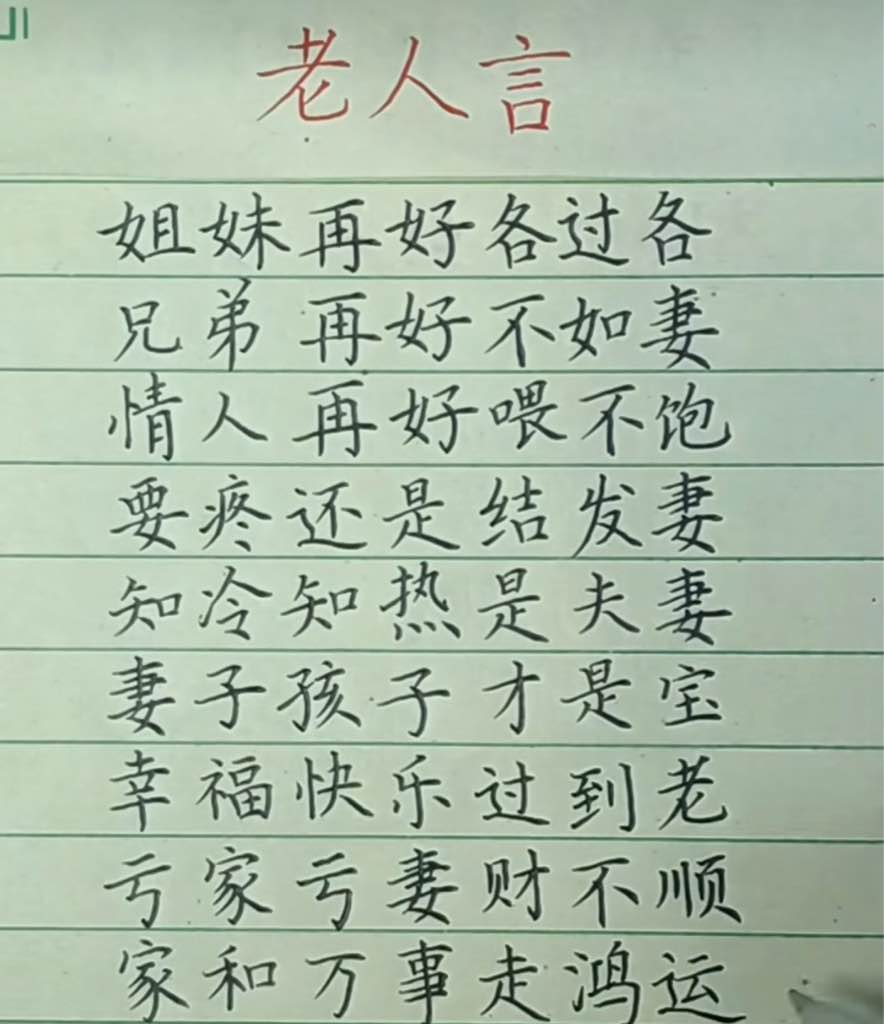 老人言
姐妹再好各过各
兄弟再好不如妻
情人再好喂不饱
要疼还是结发妻
知冷知热是夫妻
妻子孩子才是宝
幸福快乐过到老
亏家亏妻财不顺
家和万事走鸿运